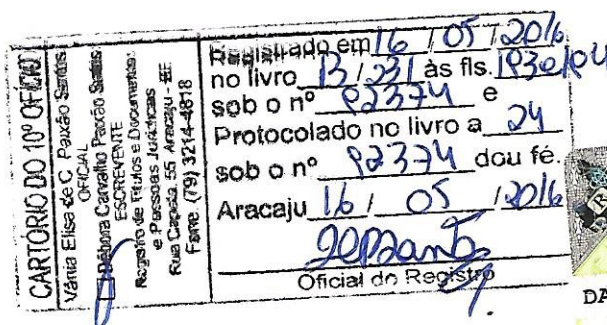 CARTÓRIO DO 10º OFÍCIO
Vânia Elisa de C. Paixão Santos
OFICIAL
Débora Carvalho Paixão Santos
ESCREVENTE
Registro de Títulos e Documentos
e Pessoas Jurídicas
Rua Capela, 55 Aracaju - SE
Fone: (79) 3214-4818
Registrado em 16 / 05 / 2016
no livro 13/231 às fls.
sob o nº 92374 e
Protocolado no livro a 24
sob o nº 92374 dou fé.
Aracaju 16 / 05 / 2016
Oficial do Registro
DA